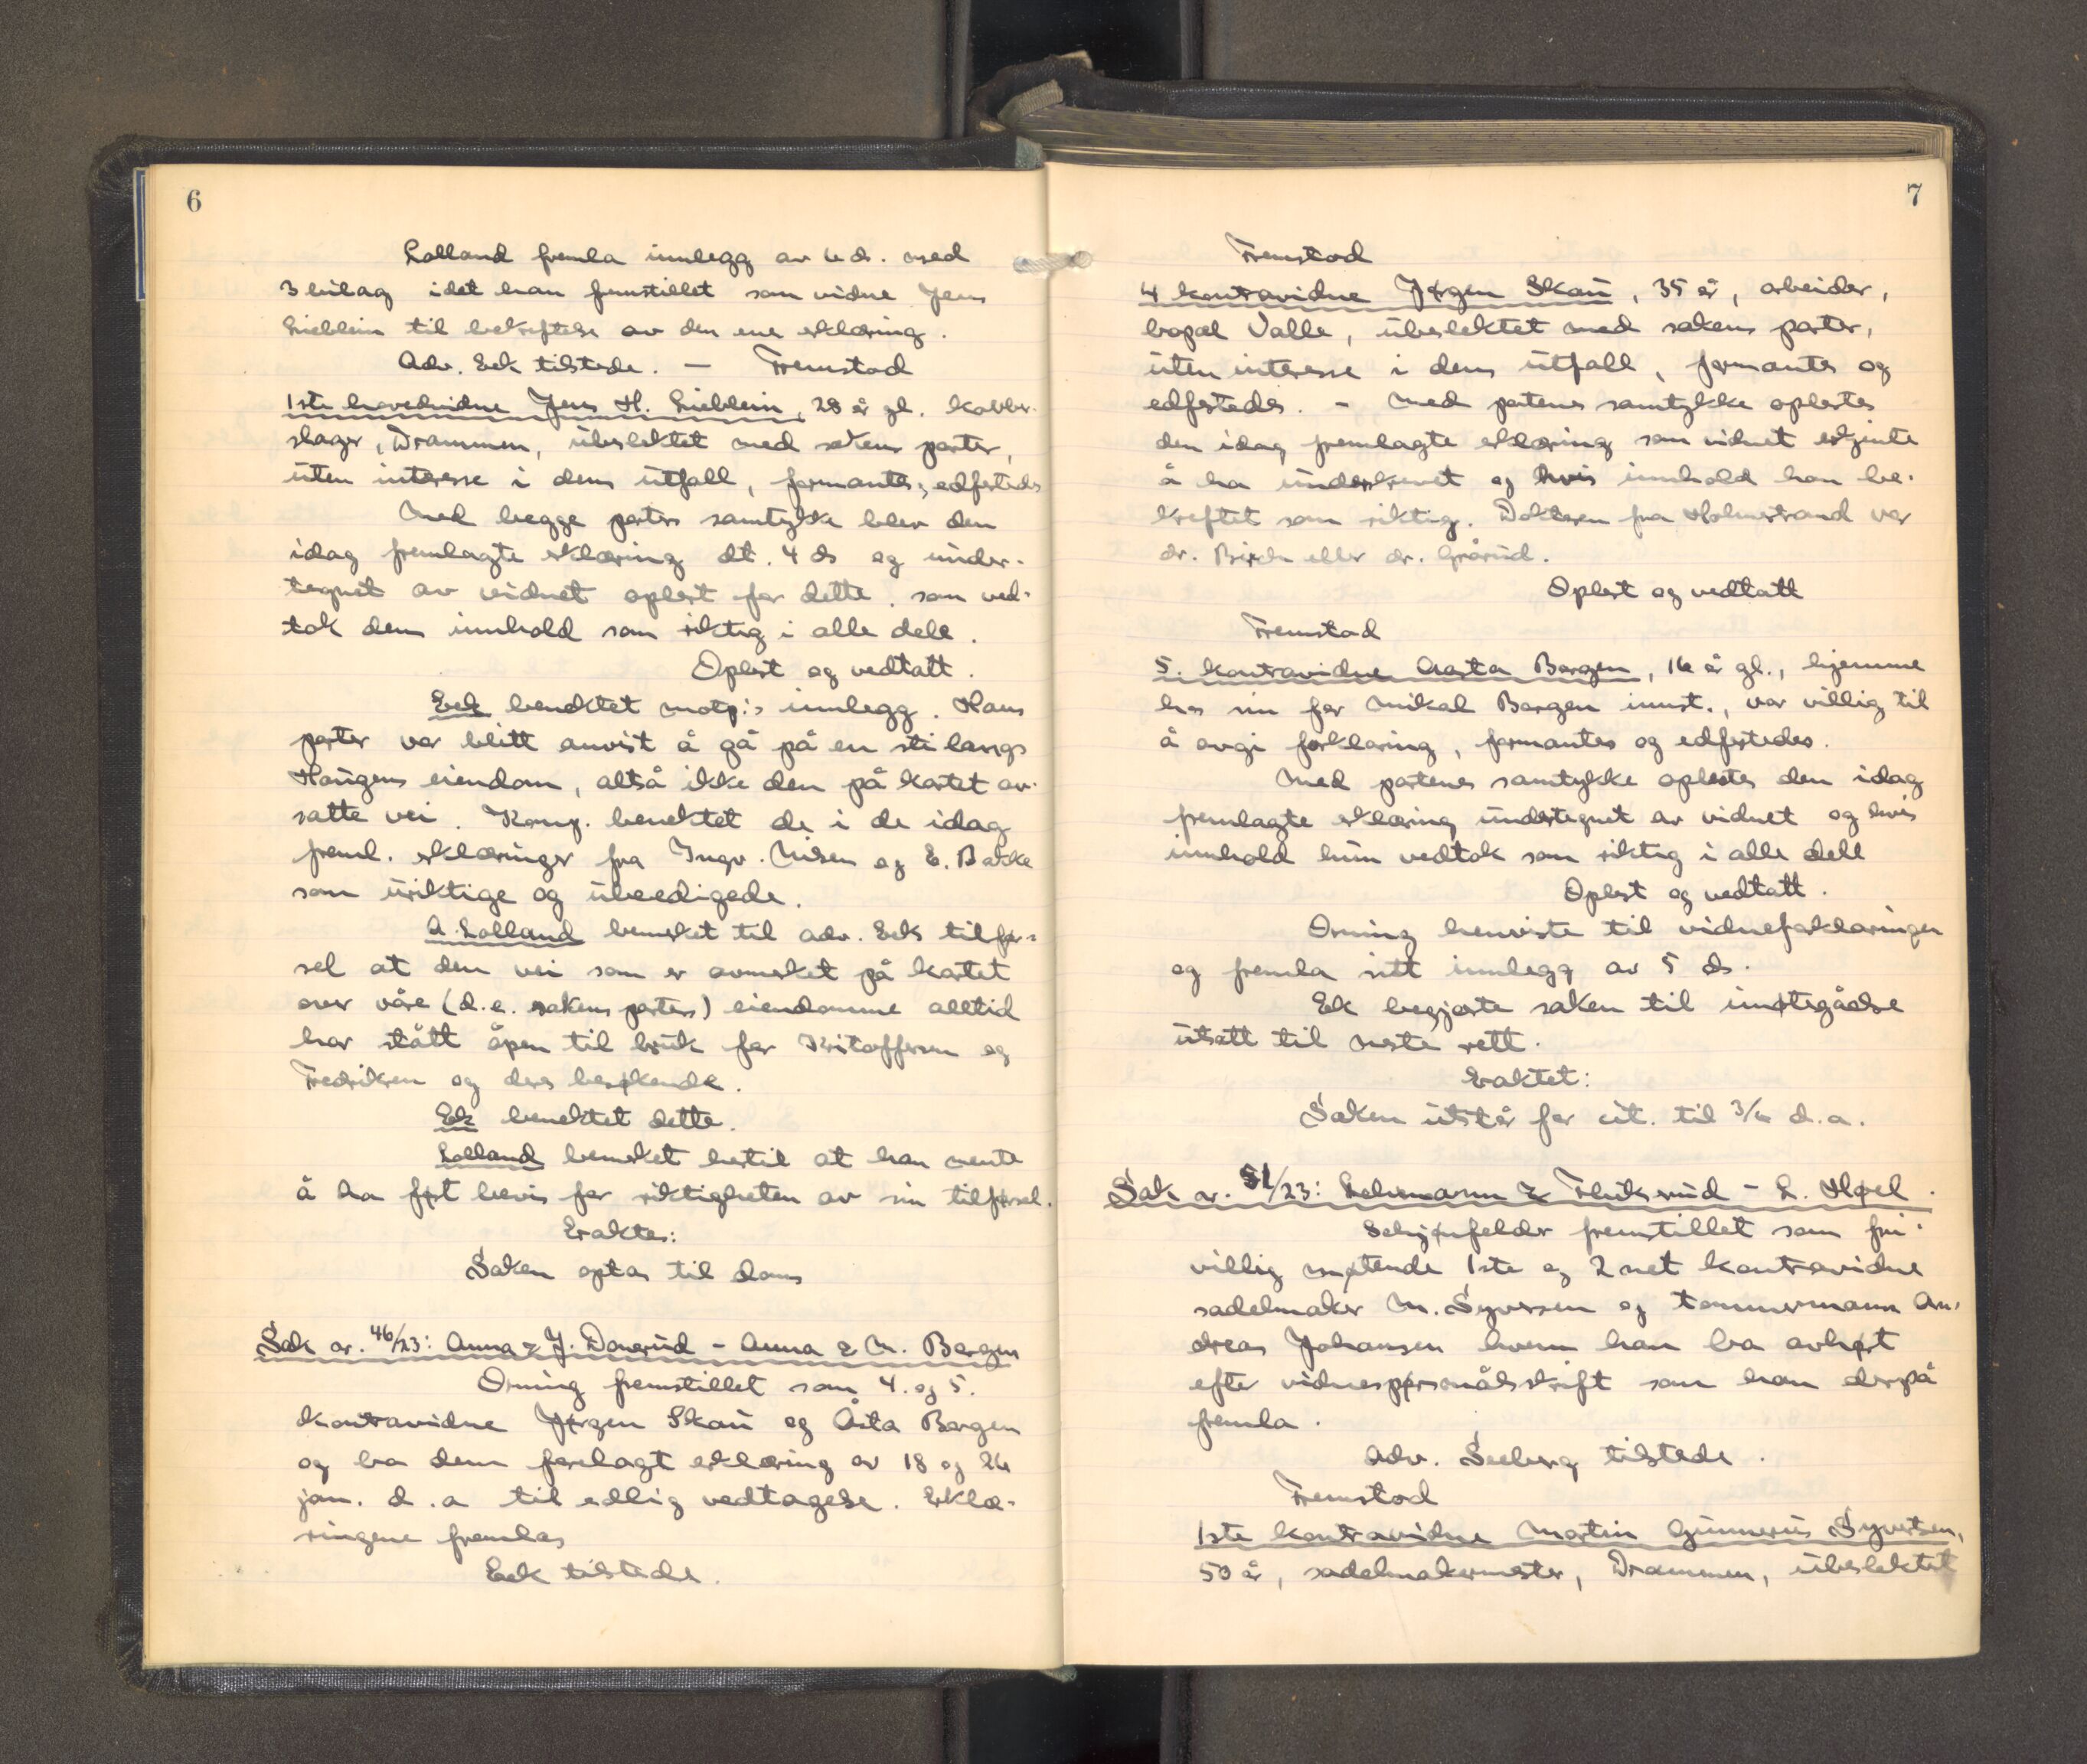 6
Lolland fremla innlegg av 6 ds. med
3 bilag idet han fremstillet som vidne Jens
Lieblein til bekreftelse av den ene erklæring.
Adv. Eek tilstede. — Fremstod
1ste hovedvidne Jens H. Lieblein, 28 år gl. kobber-
slager, Drammen, ubeslektet med sakens parter,
uten interesse i dens utfall, formantes, edfestedes
Med begge parters samtykke blev den
idag fremlagte erklæring dt. 4 ds og under-
tegnet av vidnet oplest for dette. som ved-
tok dens innhold som riktig i alle dele.
Oplest og vedtatt.
Eek benektet motp:s innlegg. Hans
parter var blitt anvist å gå på en sti langs
Haugens eiendom, altså ikke den på kartet av-
satte vei. Komp. benektet de i de idag
freml. erklæringer fra Ingv. Nilsen og E. Bakke
som uriktige og ubeedigede.
A. Lolland bemerket til adv. Eeks tilfør-
sel at den vei som er avmerket på kartet
over våre (d.e. sakens parters) eiendomme alltid
har stått åpen til bruk for Kristoffersen og
Fredriksen og deres besøkende.
Eek benektet dette.
Lolland bemerket hertil at han mente
å ha ført bevis for riktigheten av sin tilførsel.
Eraktes:
Saken optas til doms
Sak nr. 46/23: Anna & J. Donerud - Anna & M. Bergen
Orning fremstillet som 4. og 5.
kontravidne Jørgen Skau og Åsta Bergen
og ba dem forelagt erklæring av 18 og 26
jan. d.a til edlig vedtagelse. Erklæ-
ringene fremlas
Eek tilstede.
7
Fremstod
4 kontravidne Jørgen Skau, 35 år, arbeider,
bopæl Valle, ubeslektet med sakens parter,
uten interesse i dens utfall, formantes og
edfestedes. - Med partenes samtykke oplestes
den idag fremlagte erklæring som vidnet erkjente
å ha underskrevet og hvis innhold han be-
kreftet som riktig. Doktoren fra Holmestrand var
dr. Birch eller dr. Grårud.
Oplest og vedtatt
Fremstod
5. kontravidne Aasta Bergen, 16 år gl., hjemme
hos sin far Mikal Bergen innst., var villig til
å avgi forklaring, formantes og edfestedes.
Med partenes samtykke oplestes den idag
fremlagte erklæring undertegnet av vidnet og hvis
innhold hun vedtok som riktig i alle dele
Oplest og vedtatt.
Orning henviste til vidneforklaringen
og fremla sitt innlegg av 5 ds.
Eek begjærte saken til imøtegåelse
utsatt til neste rett.
Eraktet:
Saken utstår før cit. til 3/6 d.a.
Sak nr. 51/23: Lehmann & - L. Høel.
Schjønfelder fremstillet som fri-
villig møtende 1ste og 2net kontravidne
sadelmaker M. Syversen og tømmermann An-
dreas Johansen hvem han ba avhørt
efter vidnespørsmålsskrift som han derpå
fremla.
Adv. Seeberg tilstede.
Fremstod
1ste kontravidne Martin Gunnerius Syvertsen,
50 år, sadelmakermester, Drammen, ubeslektet